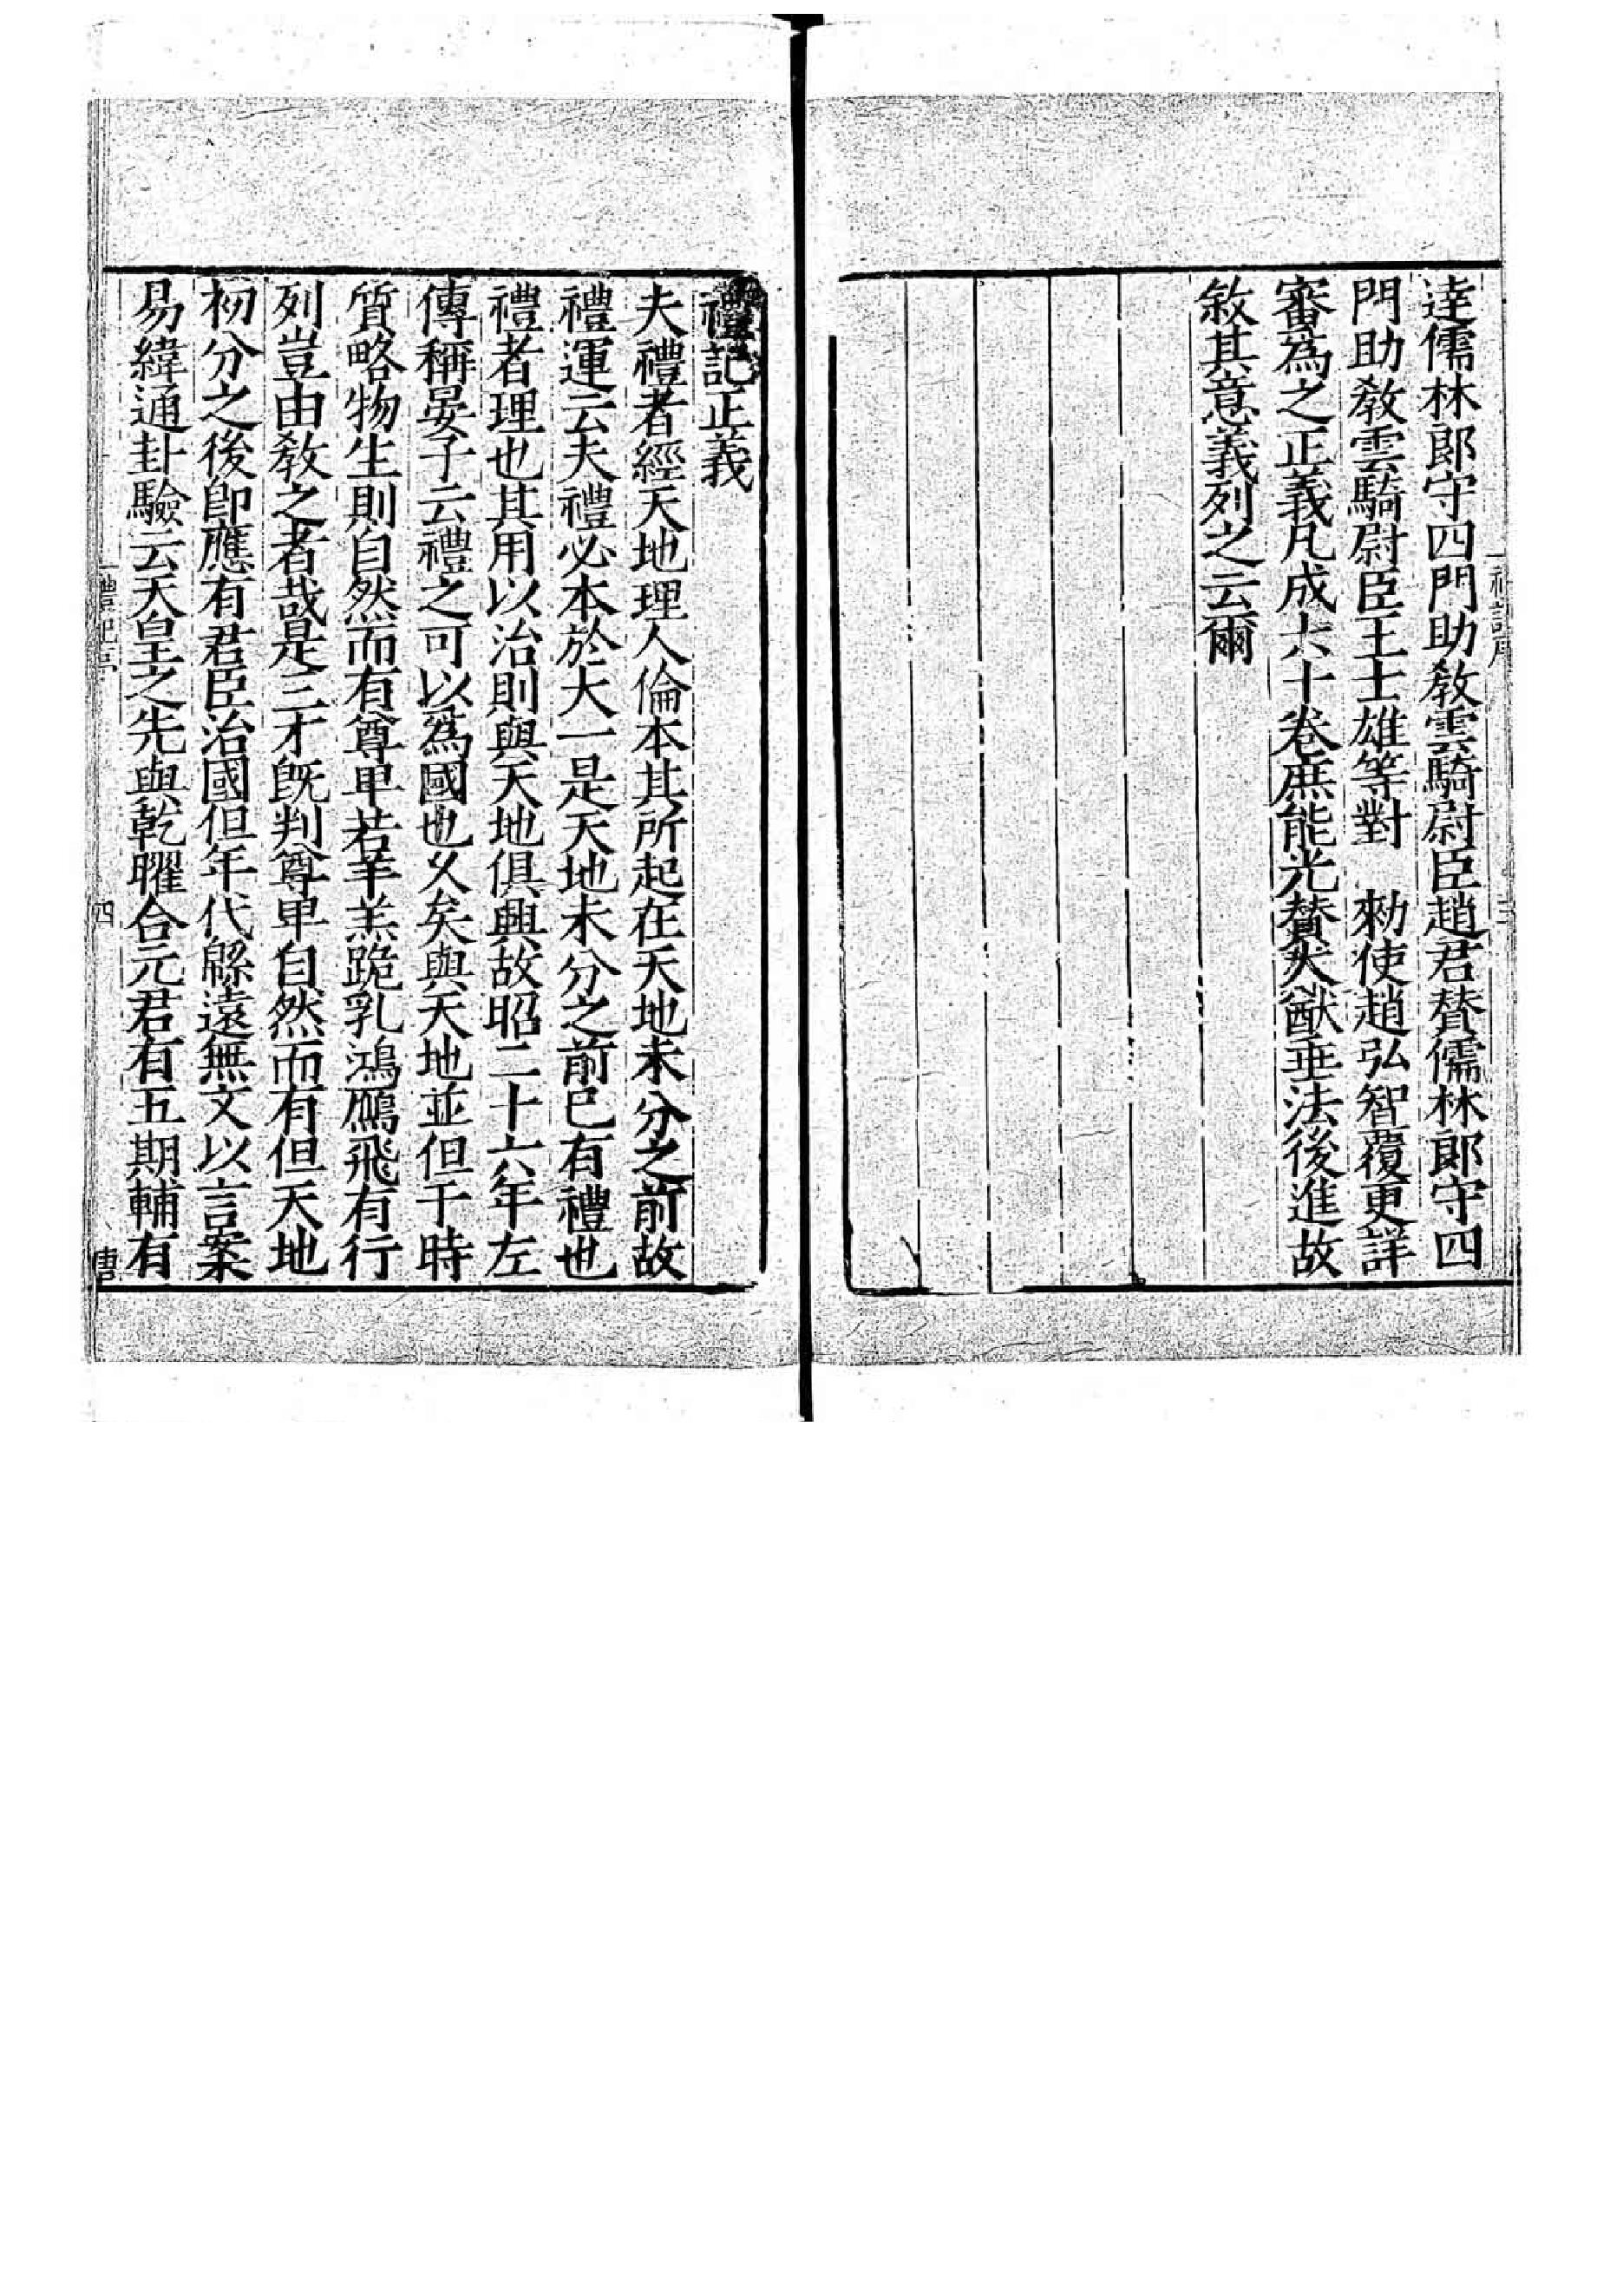 逹儒林郎守四門助敎雲騎尉臣趙君賛儒林郎守四
門助敎雲騎尉臣王士雄等對　勑使趙弘智覆更詳
審爲之正義凡成六十卷庶能光賛大猷垂法後進故
敘其意義列之云爾
禮記正義
夫禮者經天地理人倫本其所起在天地未分之前故
禮運云夫禮必本於大一是天地未分之前已有禮也
禮者理也其用以治則與天地俱興故昭二十六年左
傳稱晏子云禮之可以爲國也久矣與天地並但于時
質略物生則自然而有尊卑若羊羔跪乳鴻鴈飛有行
列豈由敎之者哉是三才旣判尊卑自然而有但天地
初分之後卽應有君臣治國但年代緜遠無文以言案
易緯通卦驗云天皇之先與乾曜合元君有五期輔有
禮記序
四